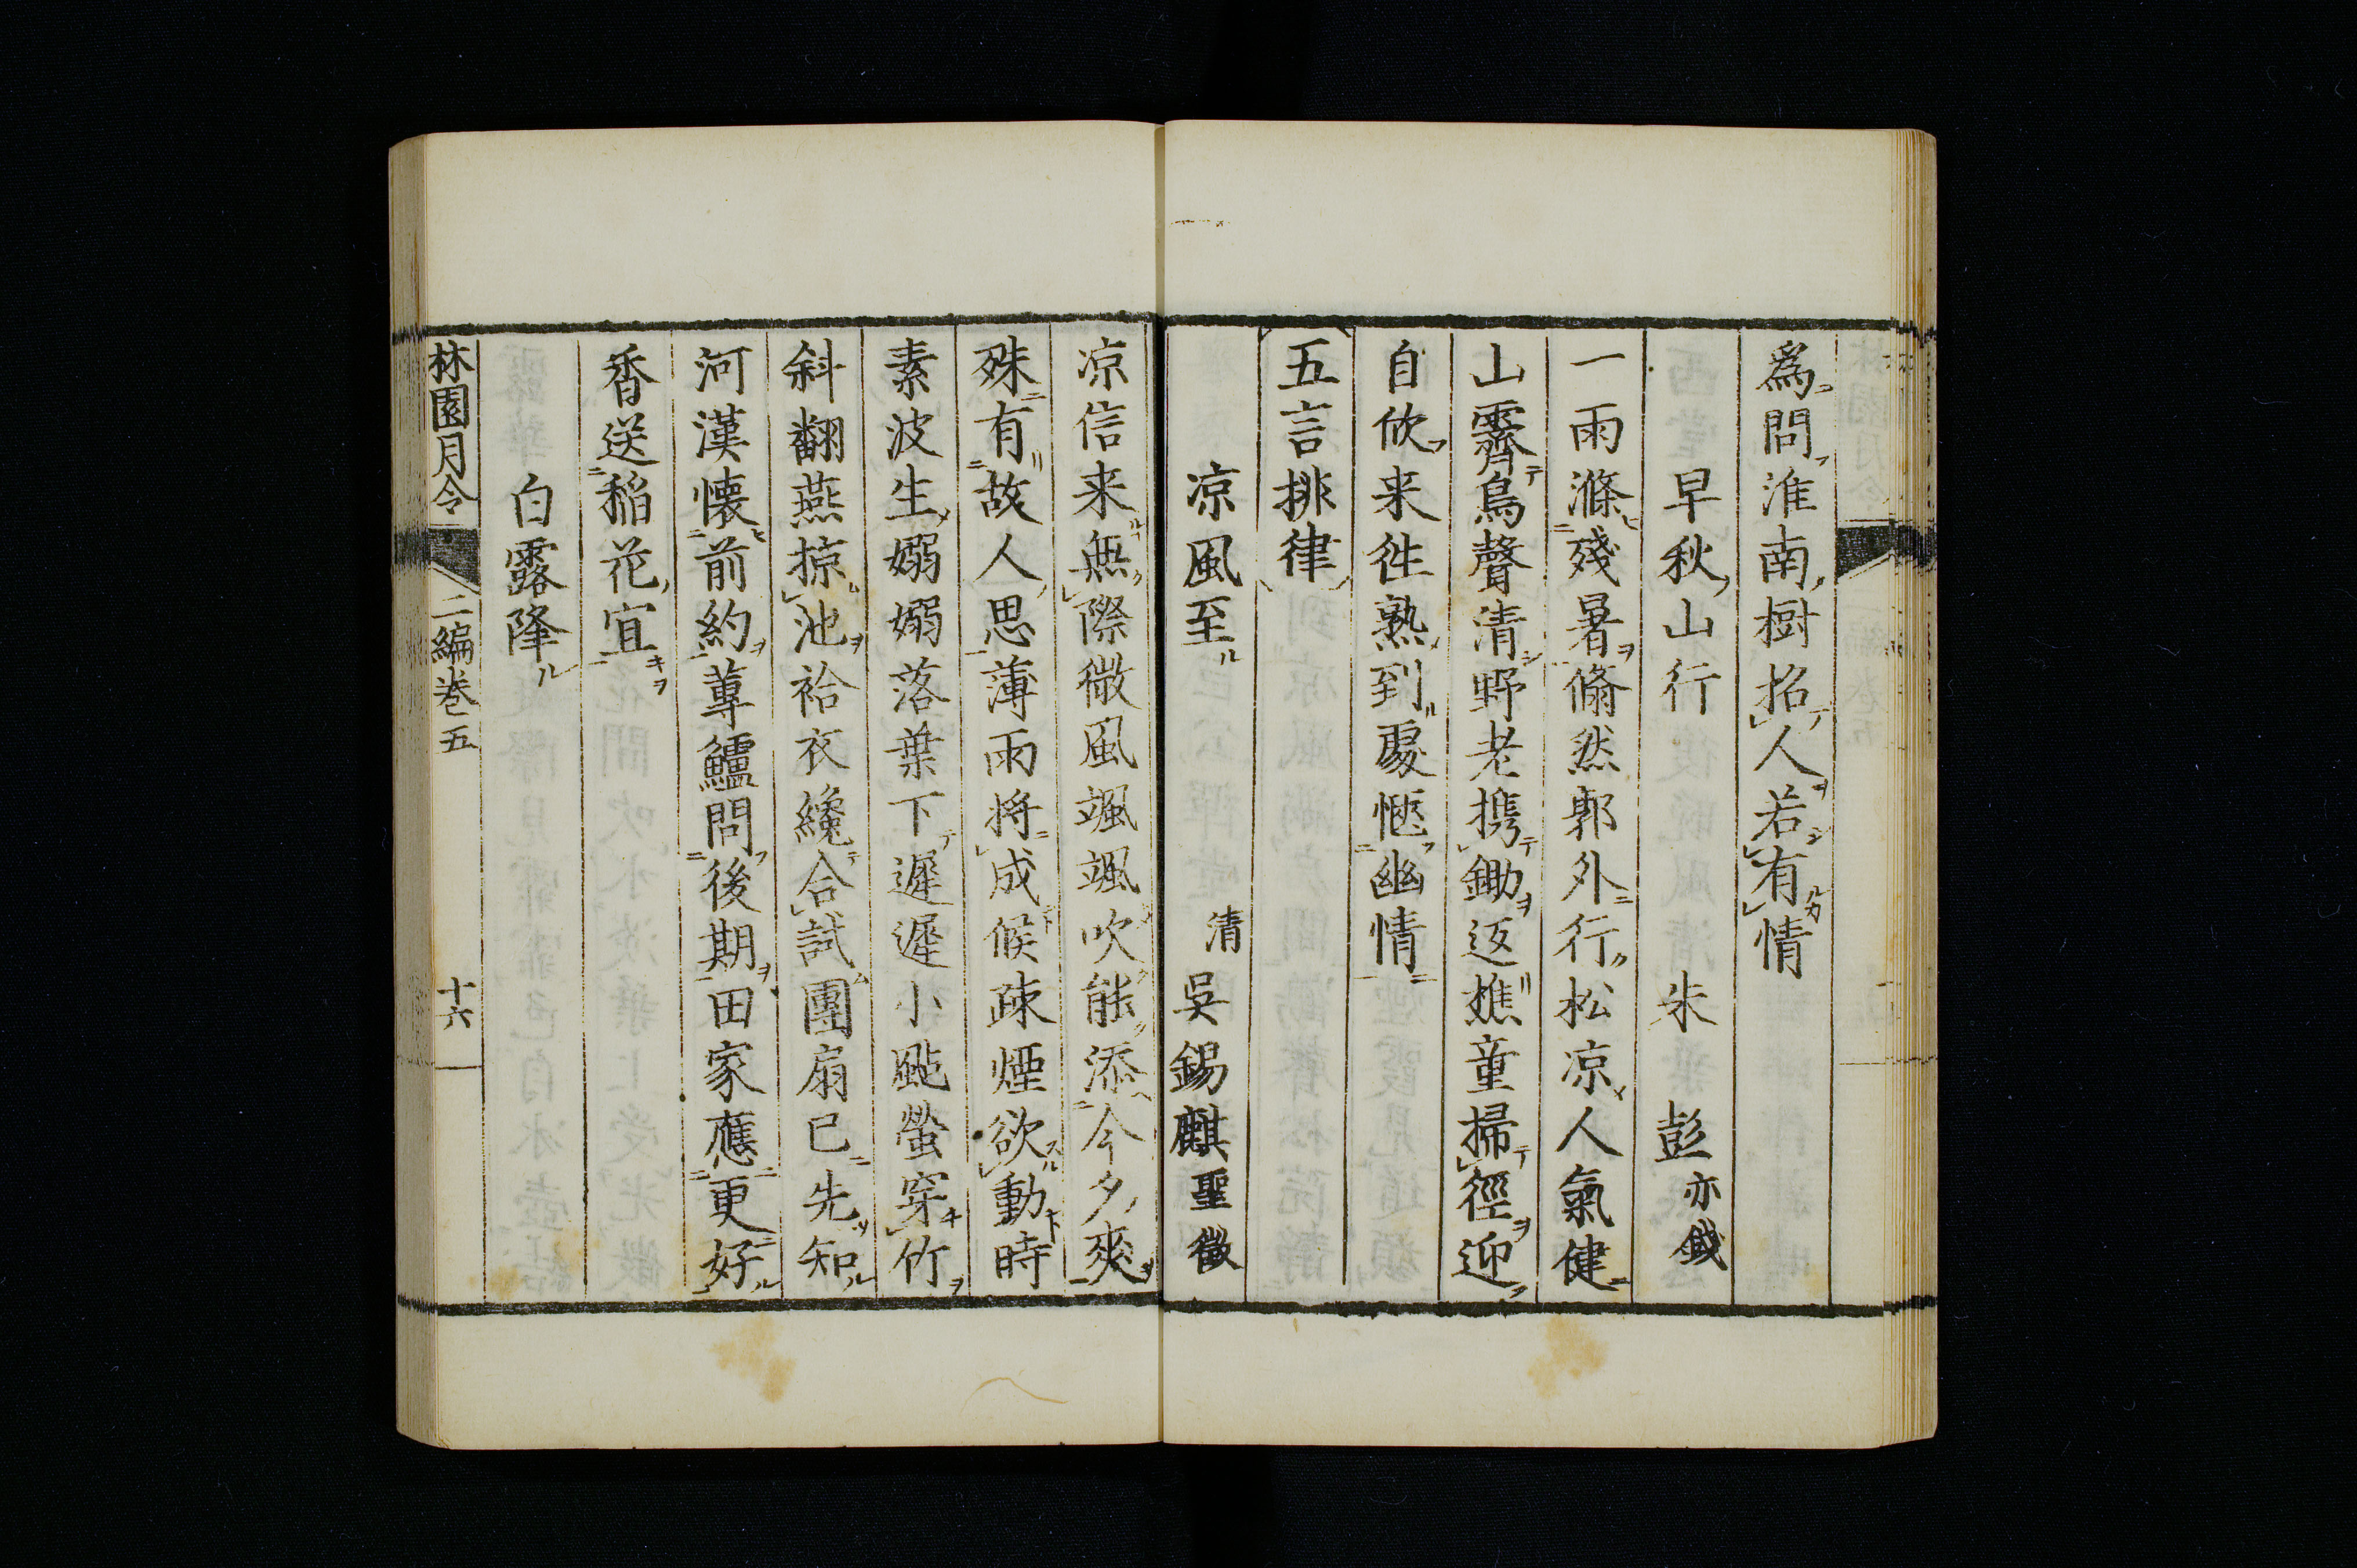 爲問淮南樹招人若有情
早秋山行 朱彭亦籛
一雨滌殘暑翛然郭外行松凉人氣健
山霽鳥聲清野老携鋤返樵童掃徑迎
自欣来徃熟到處愜幽情
五言排律
凉風至 清吳錫麒聖徵
凉信来無際微風颯颯吹能添今夕爽
殊有故人思薄雨将成候疎煙欲動時
素波生嫋嫋落葉下遲遲小颭螢穿竹
斜翻燕掠池袷衣纔合試團扇已先知
河漢懐前約蓴鱸問後期田家應更好
香送稲花宜
白露降
林園月令 二編巻五 十六